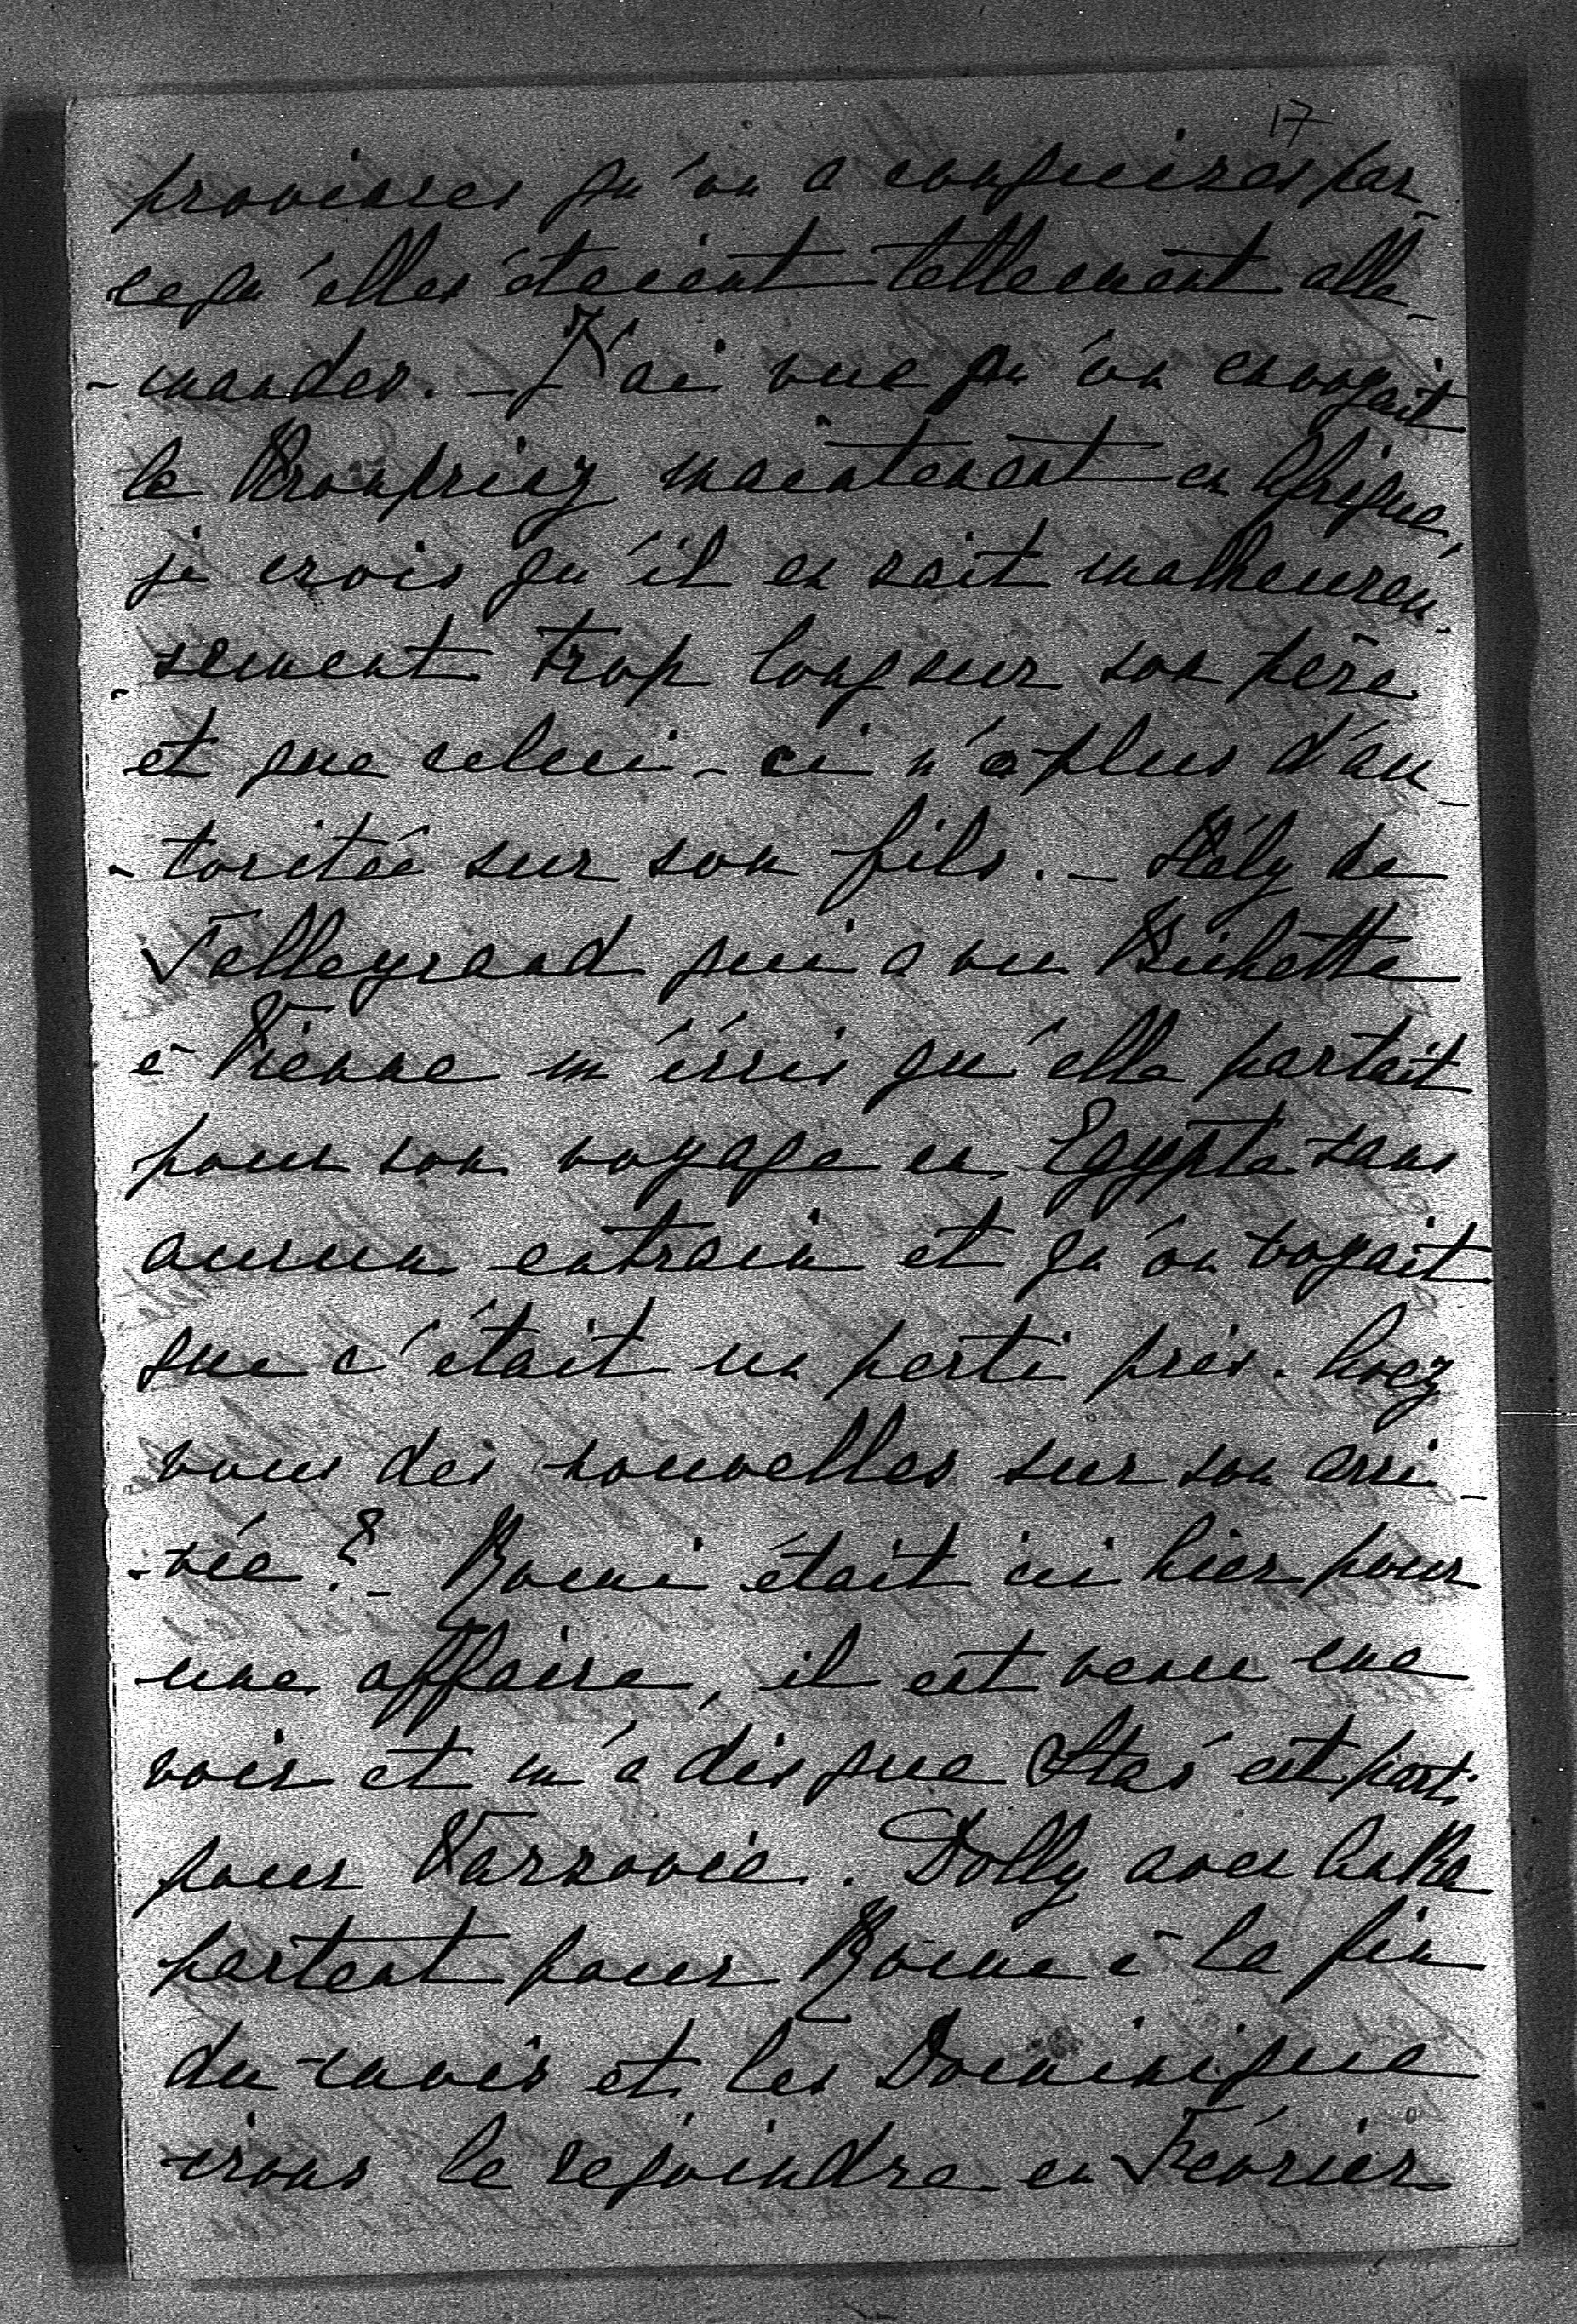 17
provinces qu'on a conquises par-
cequ'elles étaient tellement alle-
-mandes. - J'ai vue qu'on envoyait
le Kronprinz maintenant en Afrique,
je crois qu'il en sait malheureu-
-sement trop long sur son père
et que celui-ci n'a plus d'au-
-toritée sur son fils. - Hély de
Talleyrand qui a vu Bichette
à Vienne m'écris qu'elle partait
pour son voyage en Egypte sans
aucun entrain et qu'on voyait
que c'était un parti pris. Avez
vous des nouvelles sur son arri-
-vée? - Roni était ici hier pour
une affaire, il est venu me
voir et m'a dis que Stas' est parti
pour Varsovie. Dolly avec
partent pour Rome à la fin
du mois et les Dominique
irons le rejoindre en Février